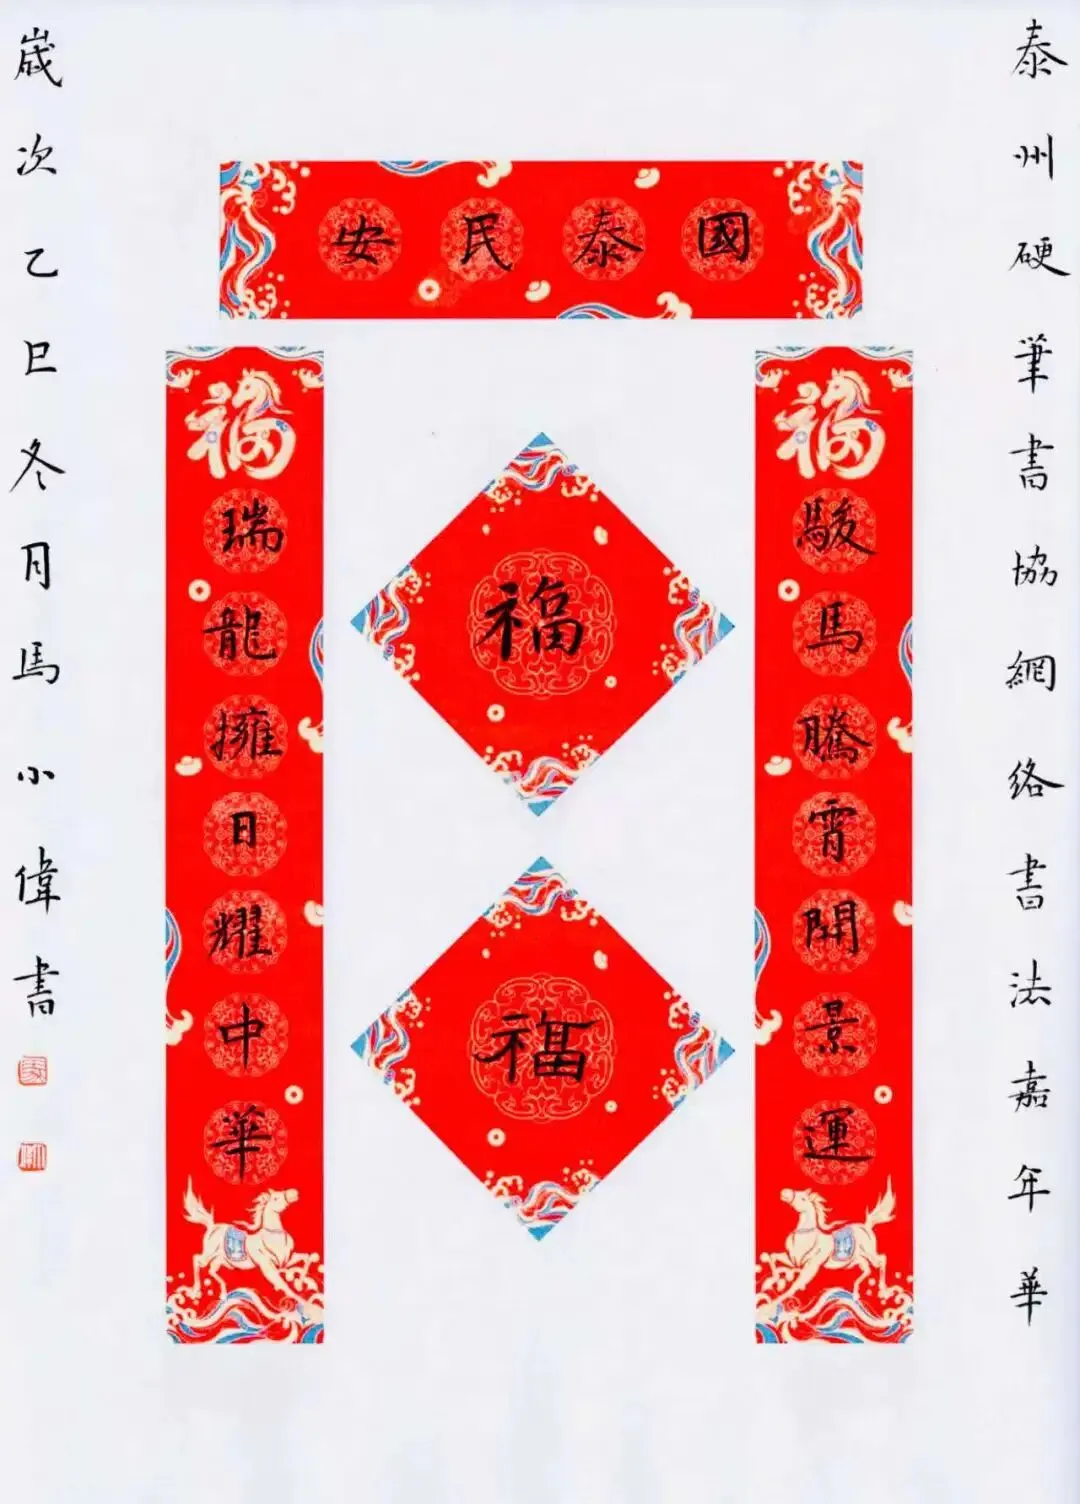 泰州硬筆書協網絡書法嘉年華
國泰民安
福
駿馬騰霄開景運
福
福
福
瑞龍擁日耀中華
歲次乙巳冬月馬小偉書